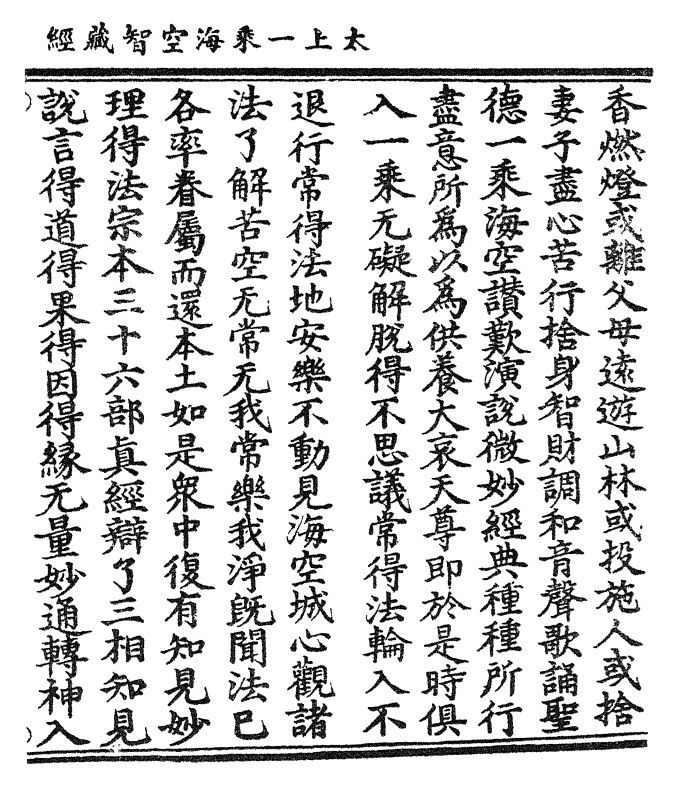 太上一乘海空智藏經
香燃燈或離父母遠遊山林或投施人或捨
妻子盡心苦行捨身智財調和音聲歌誦聖
德一乘海空讃歎演說微妙經典種種所行
盡意所爲以爲供養大哀天尊即於是時俱
入一乘无礙解脫得不思議常得法輪入不
退行常得法地安樂不動見海空城心觀諸
法了解苦空无常无我常樂我淨旣聞法已
各率眷屬而還本土如是衆中復有知見妙
理得法宗本三十六部眞經辯了三相知見
說言得道得果得因得緣无量妙通轉神入